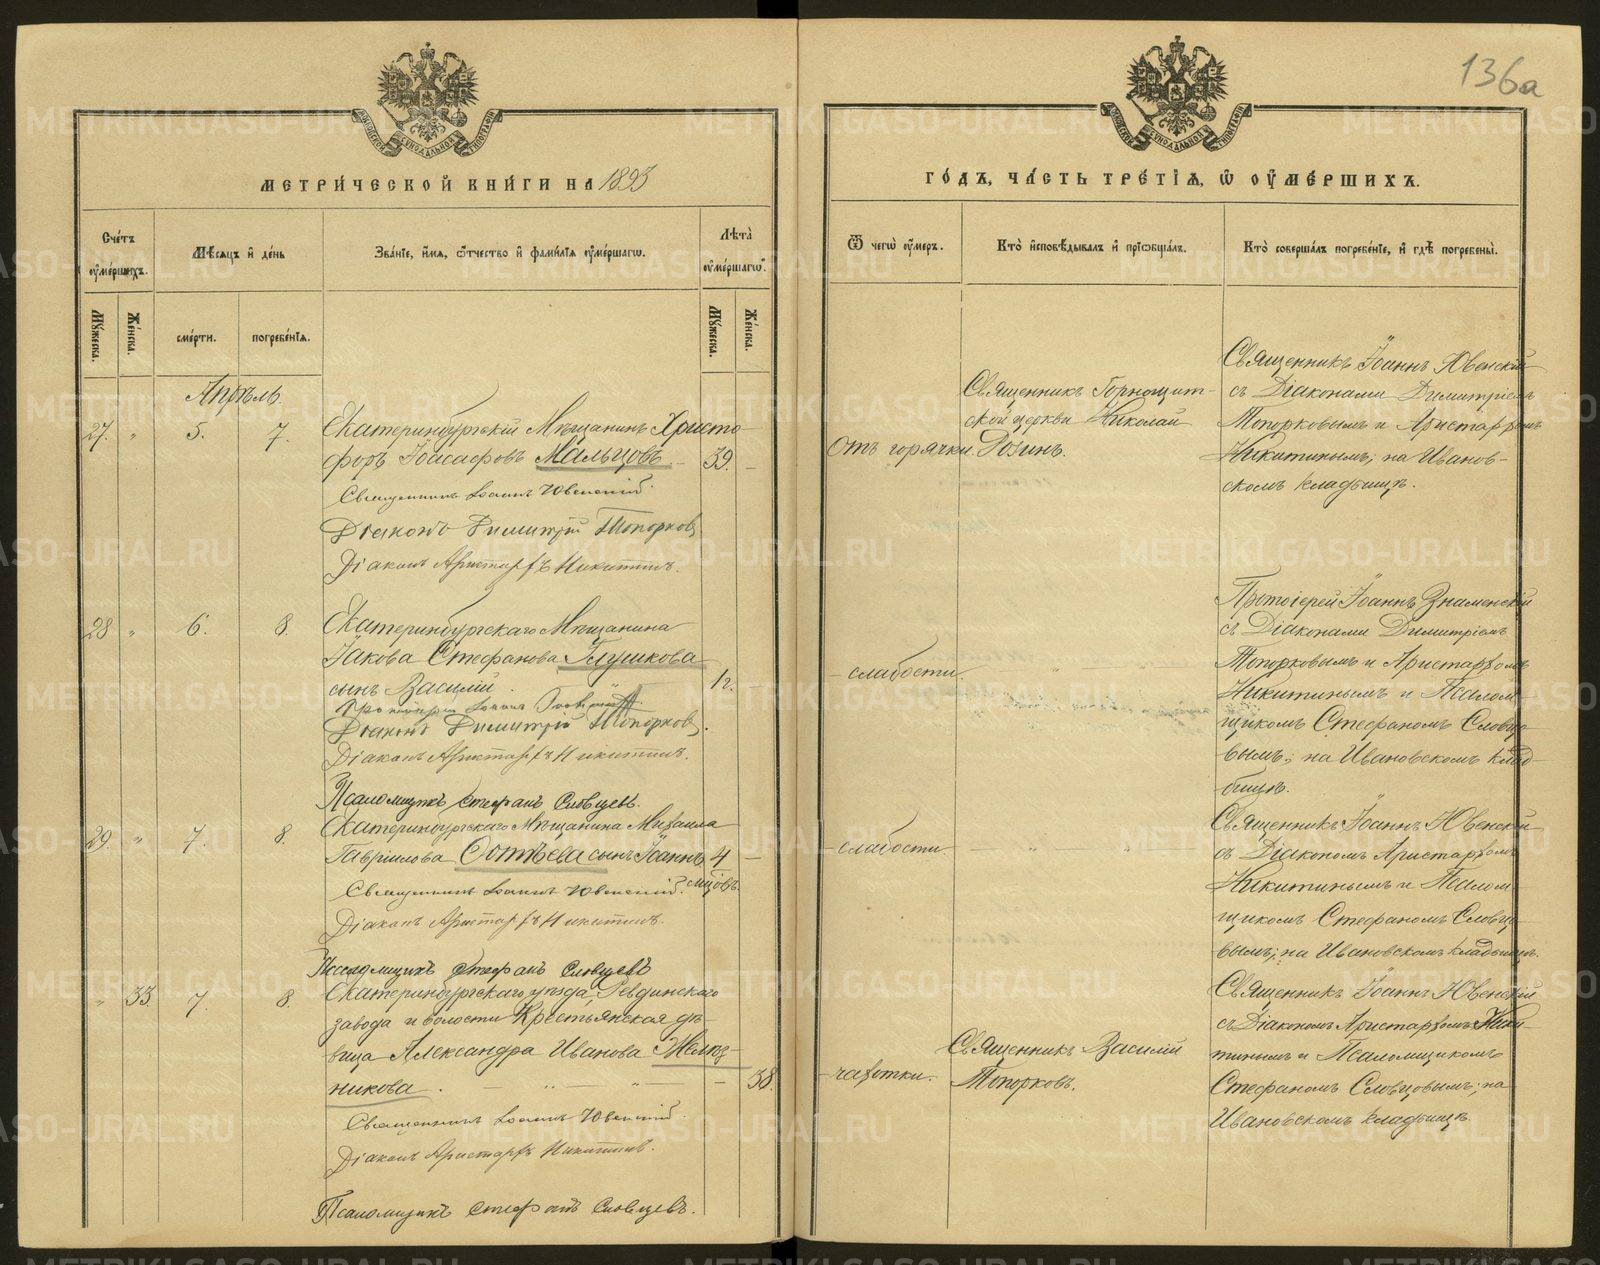 МЕТРИ́ЧЕСКОЙ КНИ́ГИ НА 1893
Сче́тъ ᲂу҆ме́ршихъ.
Мѣ́сяцъ и҆ де́нь
Зва́нїе, и҆́мя, ѻ҆́тчество и҆ фами́лїя ᲂу҆ме́ршагѡ.
Лѣта̀ ᲂу҆ме́ршагѡ.
Мꙋ́жеска.
Же́нска.
сме́рти.
погребе́нїя.
Мꙋ́жеска.
Же́нска.
Апрѣль.
27. " 5. 7. Екатеринбургскій Мѣщанинъ Христо-
форъ Іоасафовъ Мальцовъ 39. –
Священникъ Іоаннъ Ювенскій
Діаконъ Димитрій Топорковъ
Діаконъ Аристархъ Никитинъ.
28 " 6. 8. Екатеринбургскаго Мѣщанина
Іакова Стефанова Глушкова
сынъ Василій. 1 г. –
Протоіерей Іоаннъ Знаменскій
Діаконъ Димитрій Топорковъ.
Діаконъ Аристархъ Никитинъ.
Псаломщикъ Стефанъ Словцевъ.
29. " 7. 8. Екатеринбургскаго Мѣщанина Михаила
Гавріилова сынъ Іоаннъ 4 –
мѣсяцовъ.
Священникъ Іоаннъ Ювенскій.
Діаконъ Аристархъ Никитинъ.
Псаломщикъ Стефанъ Словцевъ
" 33. 7. 8. Екатеринбургскаго уѣзда, Ревдинскаго
завода и волости Крестьянская дѣ-
вица Александра Иванова Желѣз-
никова. – " – " – 38.
Священникъ Іоаннъ Ювенскій.
Діаконъ Аристархъ Никитинъ.
Псаломщикъ Стефанъ Словцевъ.
136а
ГО́ДЪ, ЧА́СТЬ ТРЕ́ТІѦ, Ѡ҆ ОУ҆МЕ́РШИХЪ.
Ѿ чегѡ̀ ᲂу҆́меръ.
Кто̀ и҆сповѣ́дывалъ и҆ прїѡбща́лъ.
Кто̀ соверша́лъ погребе́нїе, и҆ гдѣ̀ погребены̀.
Отъ горячки.
Священникъ Горнощит-
ской церкви Николай
Розинъ.
Священникъ Іоаннъ Ювенскій
съ Діаконами Димитріемъ
Топорковымъ и Аристархомъ
Никитинымъ; на Иванов-
скомъ кладбищѣ.
– слабости.
" "
Протоіерей Іоаннъ Знаменскій
съ Діаконами Димитріемъ
Топорковымъ и Аристархомъ
Никитинымъ и Псалом-
щикомъ Стефаномъ Словцо-
вымъ; на Ивановскомъ клад-
бищѣ.
– слабости.
" "
Священникъ Іоаннъ Ювенскій
съ Діакономъ Аристархомъ
Никитинымъ и Псалом-
щикомъ Стефаномъ Словцо-
вымъ; на Ивановскомъ кладбищѣ.
– чахотки.
Священникъ Василій
Топорковъ.
Священникъ Іоаннъ Ювенскій
съ Діакономъ Аристархомъ Ники-
тинымъ и Псаломщикомъ
Стефаномъ Словцовымъ; на
Ивановскомъ кладбищѣ.
METRIKI.GASO-URAL.RU